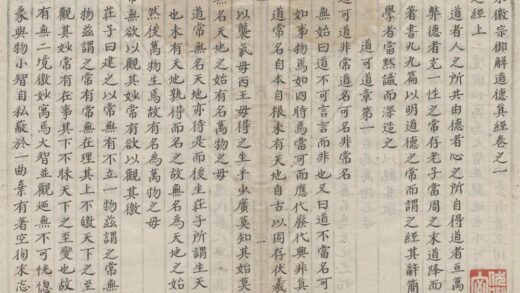 宋徽宗御解道德真經卷之一
之經上
道者人之所共由德者心之所自得道者亘萬
弊德者克一性之常存老子當周之末道降而
著書九九篇以明道德之常而謂之經其辭簡
學者當默識而深造之
道可道章第一
道可道非常道名可名非常名
無始曰道不可言言而非也又曰道不當名可
如事物焉如四時焉當可而應代廢代興非真
道常名自本自根未有天地自古以固存伏羲
以襲氣母西王母得之坐乎少廣莫知其始莫
無名天地之始有名萬物之母
道常無名天地亦待是而後生莊子所謂生天
也未有天地孰得而名之故無名為天地之始
然後萬物生焉故有名為萬物之母
常無欲以觀其妙常有欲以觀其徼
莊子曰建之以常無有不立一物茲謂之常無
物茲謂之常有常無在理其上不皦天下之至
觀其妙常有在事其下不昧天下之至變也故
有無二境徼妙寓焉大智並觀迥無不可恍惚
象與物小智自私蔽於一曲棄有著空徇末忘